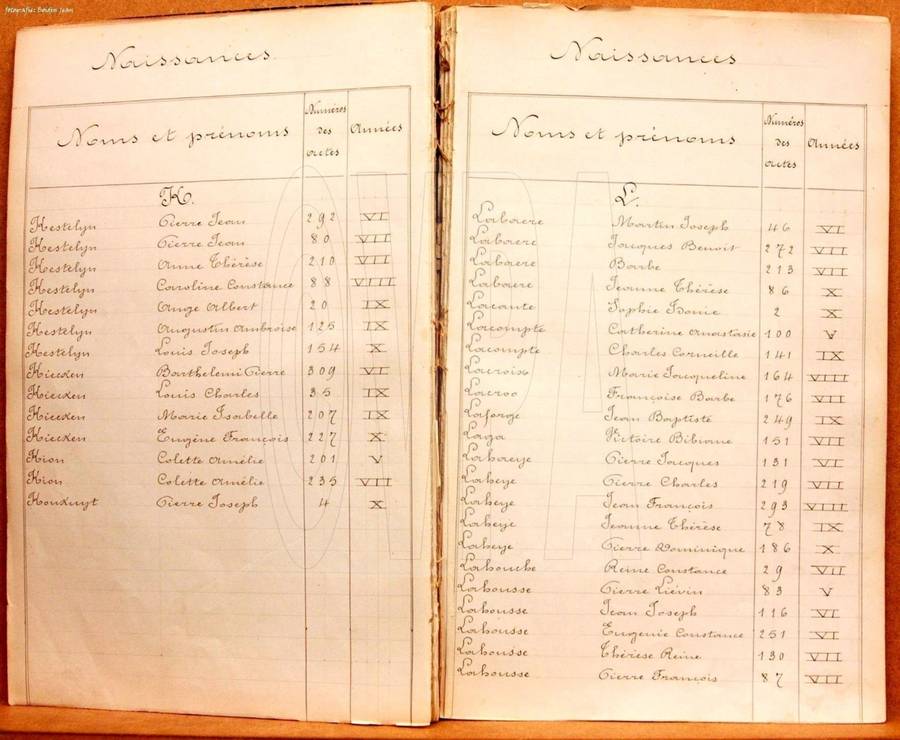 fotografie: Beirden Jean
Naissances
Noms et prénoms
Numéros des actes
Années
K.
Kestelyn Pierre Jean 292 VI
Kestelyn Pierre Jean 80 VII
Kestelyn Anne Thérèse 210 VII
Kestelyn Caroline Constance 88 VIII
Kestelyn Ange Albert 20 IX
Kestelyn Augustin Ambroise 125 IX
Kestelyn Louis Joseph 154 X
Kiecken Barthelemi Pierre 309 VI
Kiecken Louis Charles 35 IX
Kiecken Marie Isabelle 207 IX
Kiecken Eugène François 227 X
Kion Colette Amélie 201 V
Kion Colette Amélie 235 VII
Konkuyt Pierre Joseph 4 X
Naissances
Noms et prénoms
Numéros des actes
Années
L.
Labaere Martin Joseph 46 VI
Labaere Jacques Benoit 272 VII
Labaere Barbe 213 VII
Labaere Jeanne Thérèse 86 X
Lacante Sophie Idonie 2 X
Lacompte Catherine Anastasie 100 V
Lacompte Charles Corneille 141 IX
Lacroix Marie Jacqueline 164 VIII
Lacroo Françoise Barbe 176 VII
Laforge Jean Baptiste 249 IX
Laga Victoire Bibiane 151 VII
Lahaeye Pierre Jacques 131 VI
Laheye Pierre Charles 219 VII
Laheye Jean François 293 VIII
Laheye Jeanne Thérèse 78 IX
Laheye Pierre Dominique 186 X
Lahouche Reine Constance 29 VII
Lahousse Pierre Liévin 83 V
Lahousse Jean Joseph 116 VI
Lahousse Eugenie Constance 251 VI
Lahousse Thérèse Reine 130 VII
Lahousse Pierre François 87 VII